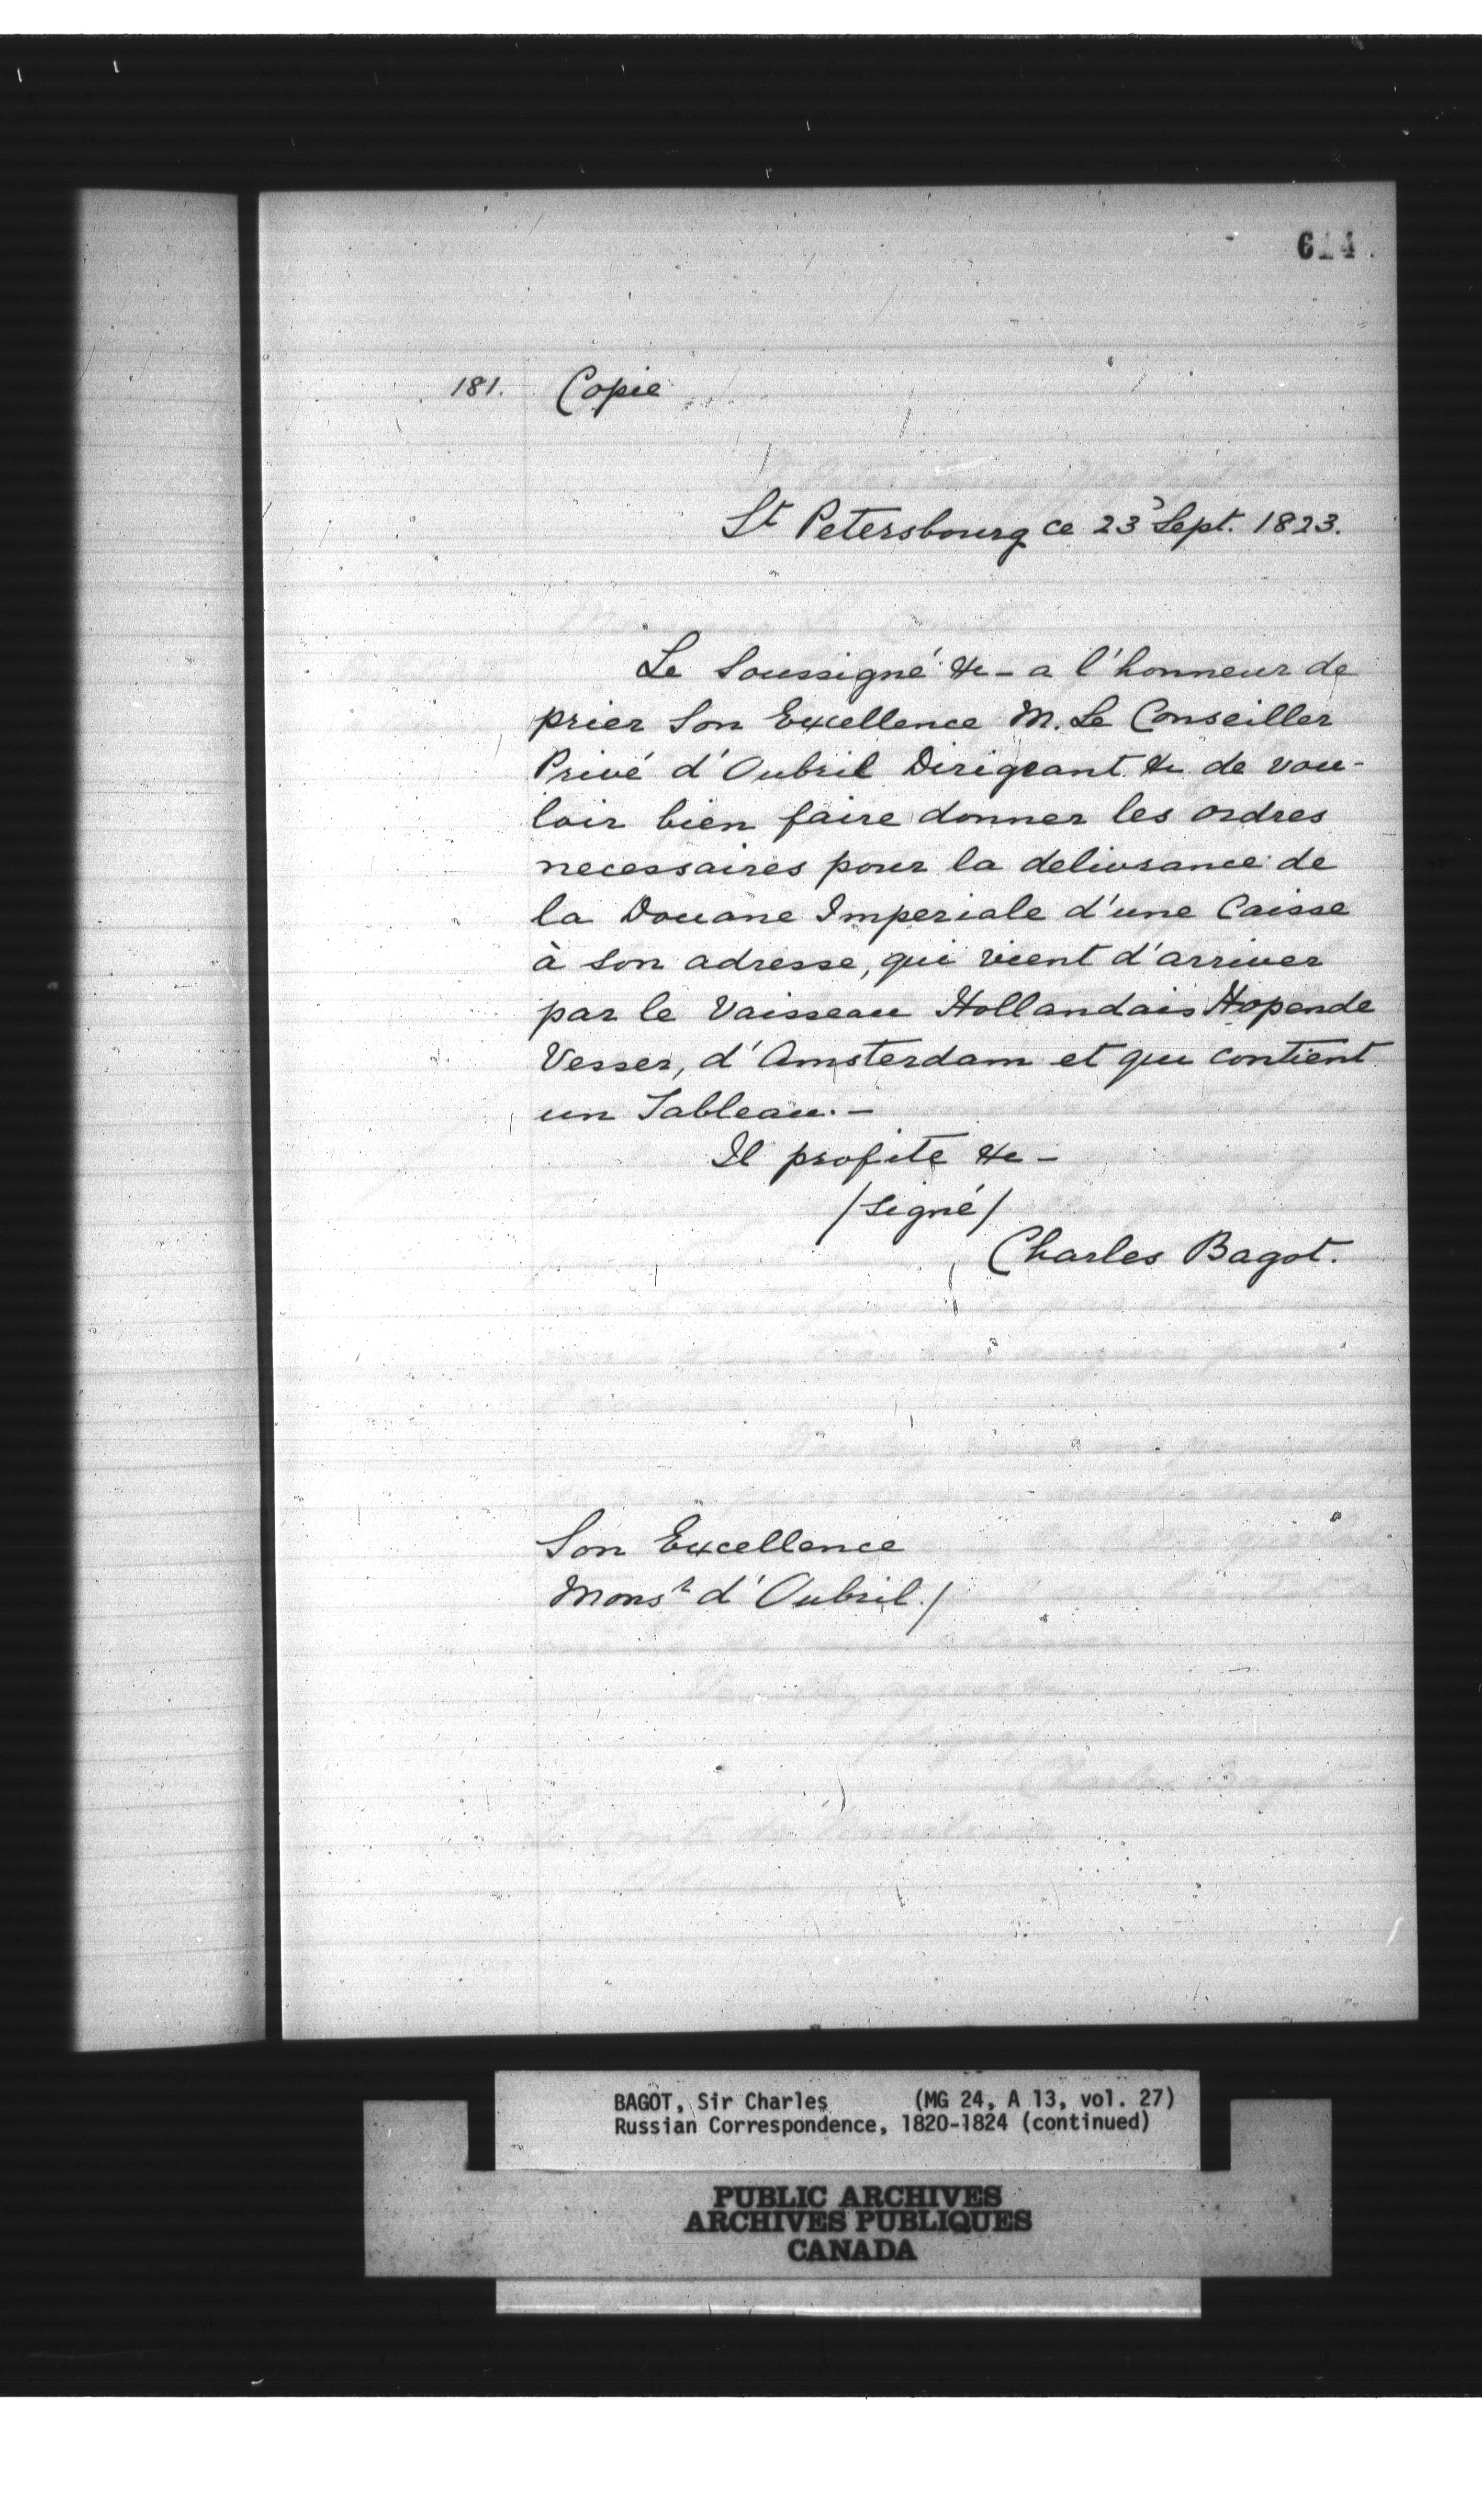 614.
181. Copie
St Petersbourg ce 23 Sept. 1823.
Le Soussigné &c - a l'honneur de
prier Son Excellence M. Le Conseiller
Privé d'Oubril Dirigeant &c de vou-
loir bien faire donner les ordres
necessaires pour la delivrance de
la Douane Imperiale d'une Caisse
à son adresse, qui vient d'arriver
par le Vaisseau Hollandais Hopende
Vesser, d'Amsterdam et qui contient
un Tableau. -
Il profite &c -
/signé/
Charles Bagot.
Son Excellence
Monsr d'Oubril./
BAGOT, Sir Charles (MG 24, A 13, vol. 27)
Russian Correspondence, 1820-1824 (continued)
PUBLIC ARCHIVES
ARCHIVES PUBLIQUES
CANADA